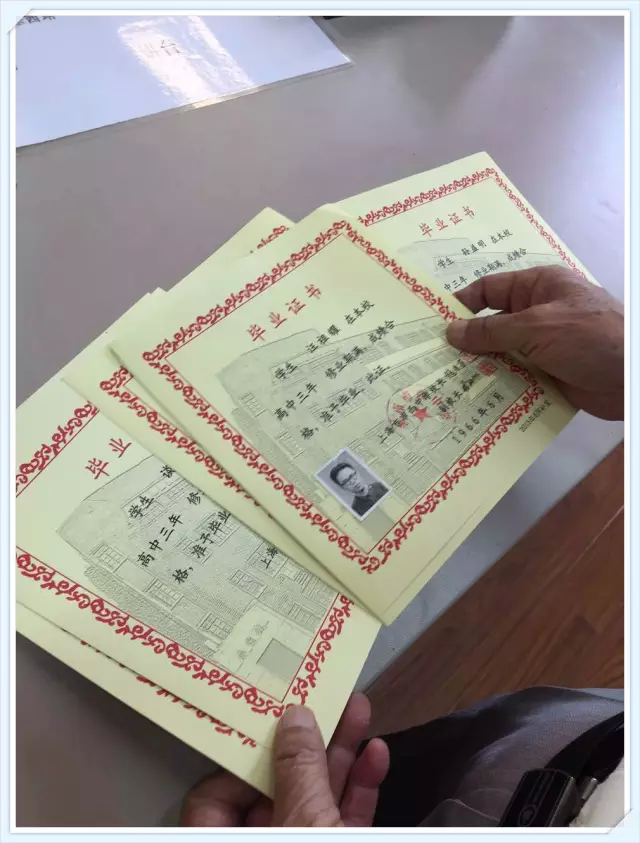 台
毕业证书
学生 在本校
中三年 修业期满,成绩合
毕业证书
学生 汪祖耀 在本校
高中三年 修业期满,成绩合
格,准予毕业,此证
上海
1966年6月
毕业
学生 谈
高中三年 修
格,准予毕业
上海